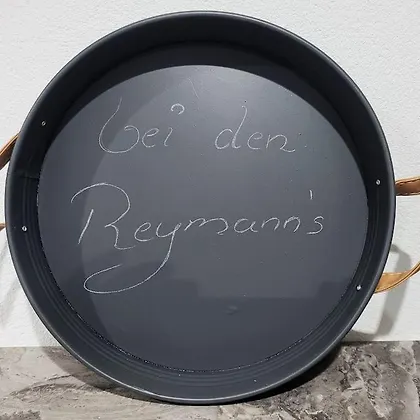 bei den
Reymann's